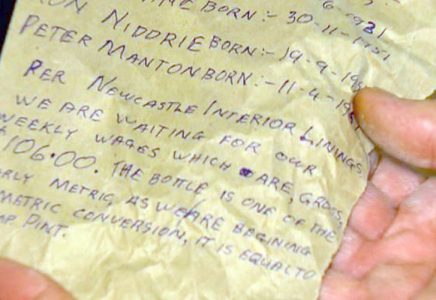 BORN:- 30-11-1951
NIDDRIE BORN:- 19-9-19
PETER MANTON BORN:- 11-4-19
PER NEWCASTLE INTERIOR LININGS
WE ARE WAITING FOR OUR
WEEKLY WAGES WHICH ARE, GROSS,
$106.00. THE BOTTLE IS ONE OF THE
METRIC, AS WE ARE BEGINING
METRIC CONVERSION, IT IS EQUAL TO
PINT.